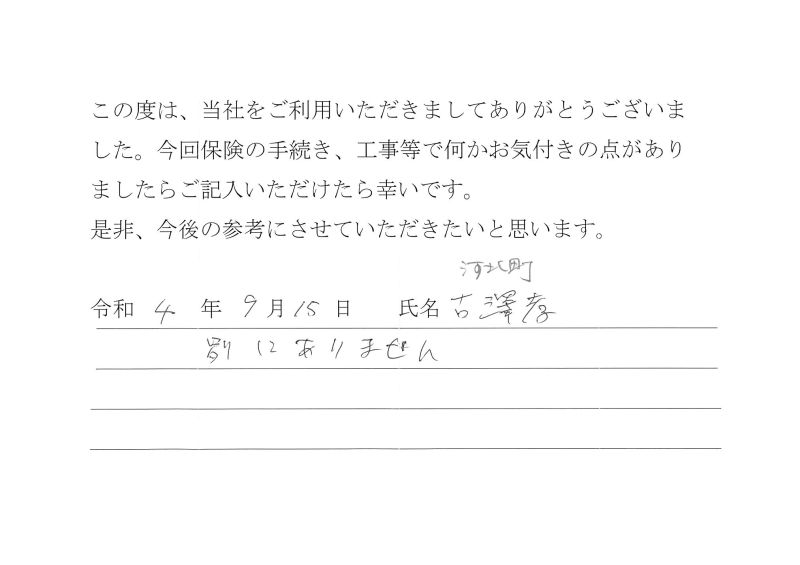 この度は、当社をご利用いただきましてありがとうございま
した。今回保険の手続き、工事等で何かお気付きの点があり
ましたらご記入いただけたら幸いです。
是非、今後の参考にさせていただきたいと思います。
河北町
令和 4 年 9 月 15 日 氏名 吉澤孝
別にありません